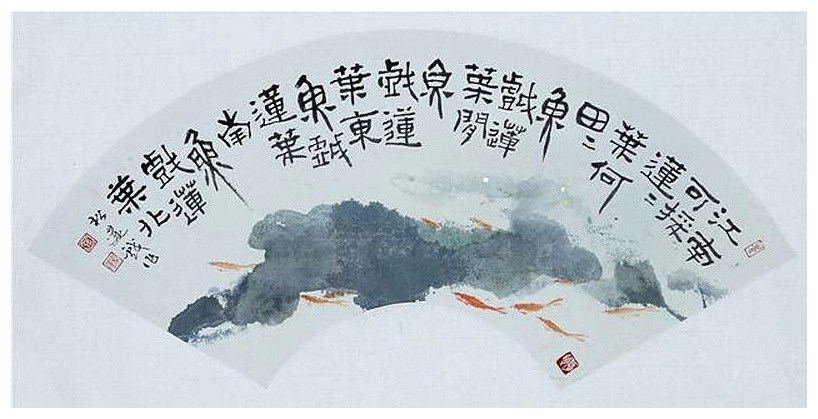 江南
可採
蓮〻
葉何
田〻
魚
戲蓮
葉間
魚
戲蓮
葉東
魚戲
蓮葉
南
魚
戲蓮
葉北
戲作